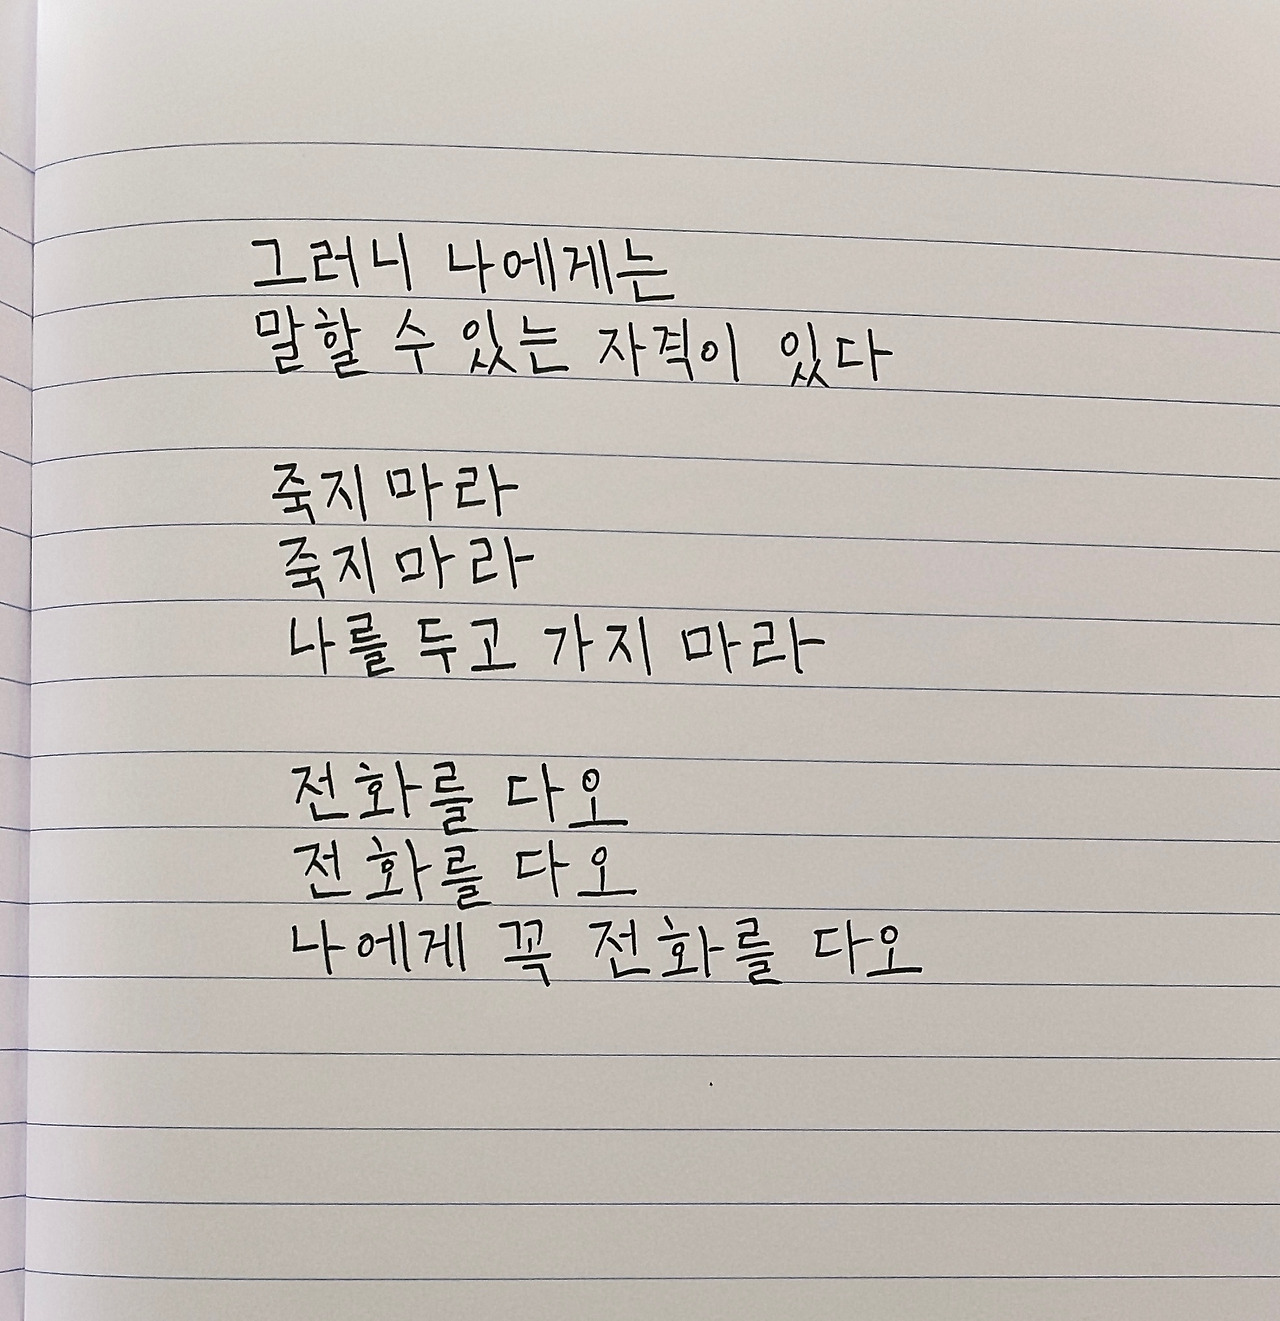 그러니 나에게는
말할 수 있는 자격이 있다
죽지 마라
죽지 마라
나를 두고 가지 마라
전화를 다오
전화를 다오
나에게 꼭 전화를 다오